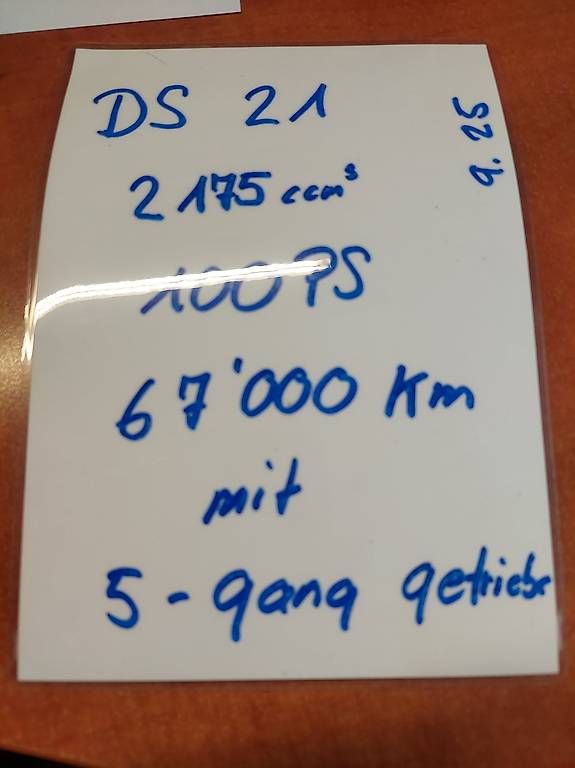 DS 21
2175 ccm³
100 PS
67'000 Km
mit
5-gang getriebe
9.25